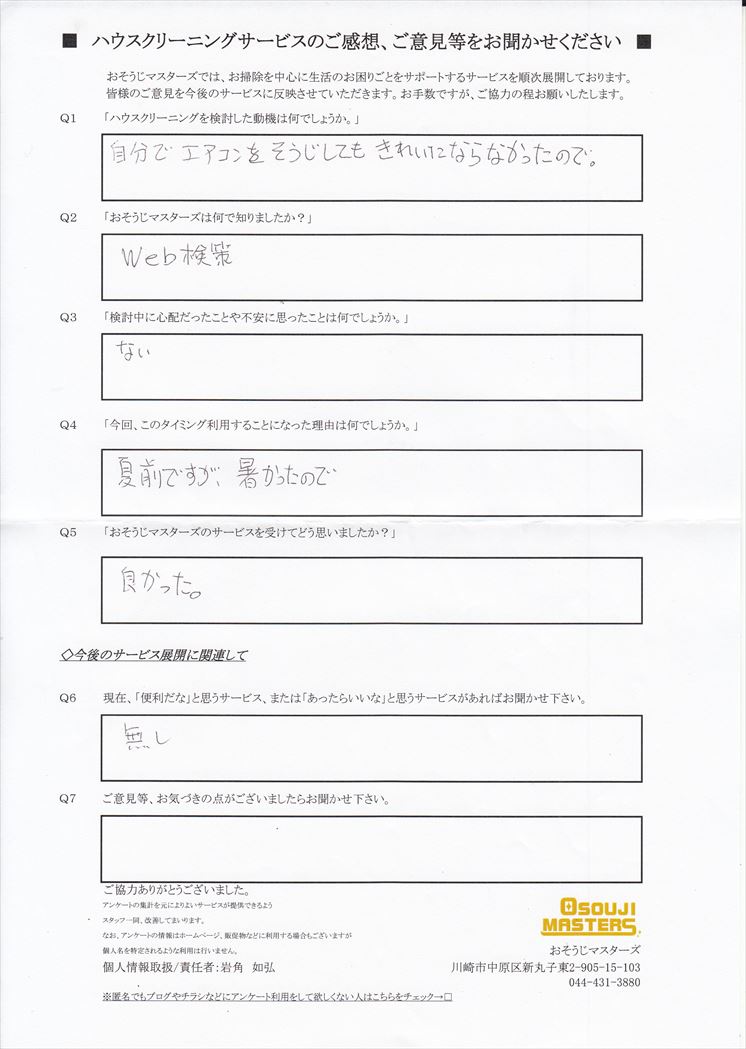 ■ ハウスクリーニングサービスのご感想、ご意見等をお聞かせください ■
おそうじマスターズでは、お掃除を中心に生活のお困りごとをサポートするサービスを順次展開しております。
皆様のご意見を今後のサービスに反映させていただきます。お手数ですが、ご協力の程お願いしたします。
Q1 「ハウスクリーニングを検討した動機は何でしょうか。」
自分で エアコンを そうじしても きれいにならなかったので。
Q2 「おそうじマスターズは何で知りましたか？」
Web検策
Q3 「検討中に心配だったことや不安に思ったことは何でしょうか。」
ない
Q4 「今回、このタイミング利用することになった理由は何でしょうか。」
夏前ですが、暑かったので
Q5 「おそうじマスターズのサービスを受けてどう思いましたか？」
良かった。
◇今後のサービス展開に関連して
Q6 現在、「便利だな」と思うサービス、または「あったらいいな」と思うサービスがあればお聞かせ下さい。
無し
Q7 ご意見等、お気づきの点がございましたらお聞かせ下さい。
ご協力ありがとうございました。
アンケートの集計を元によりよいサービスが提供できるよう
スタッフ一同、改善してまいります。
なお、アンケートの情報はホームページ、販促物などに利用する場合もございますが
個人名を特定されるような利用は行いません。
個人情報取扱/責任者:岩角 如弘
※匿名でもブログやチラシなどにアンケート利用をして欲しくない人はこちらをチェック→□
OSOUJI
MASTERS
おそうじマスターズ
川崎市中原区新丸子東2-905-15-103
044-431-3880